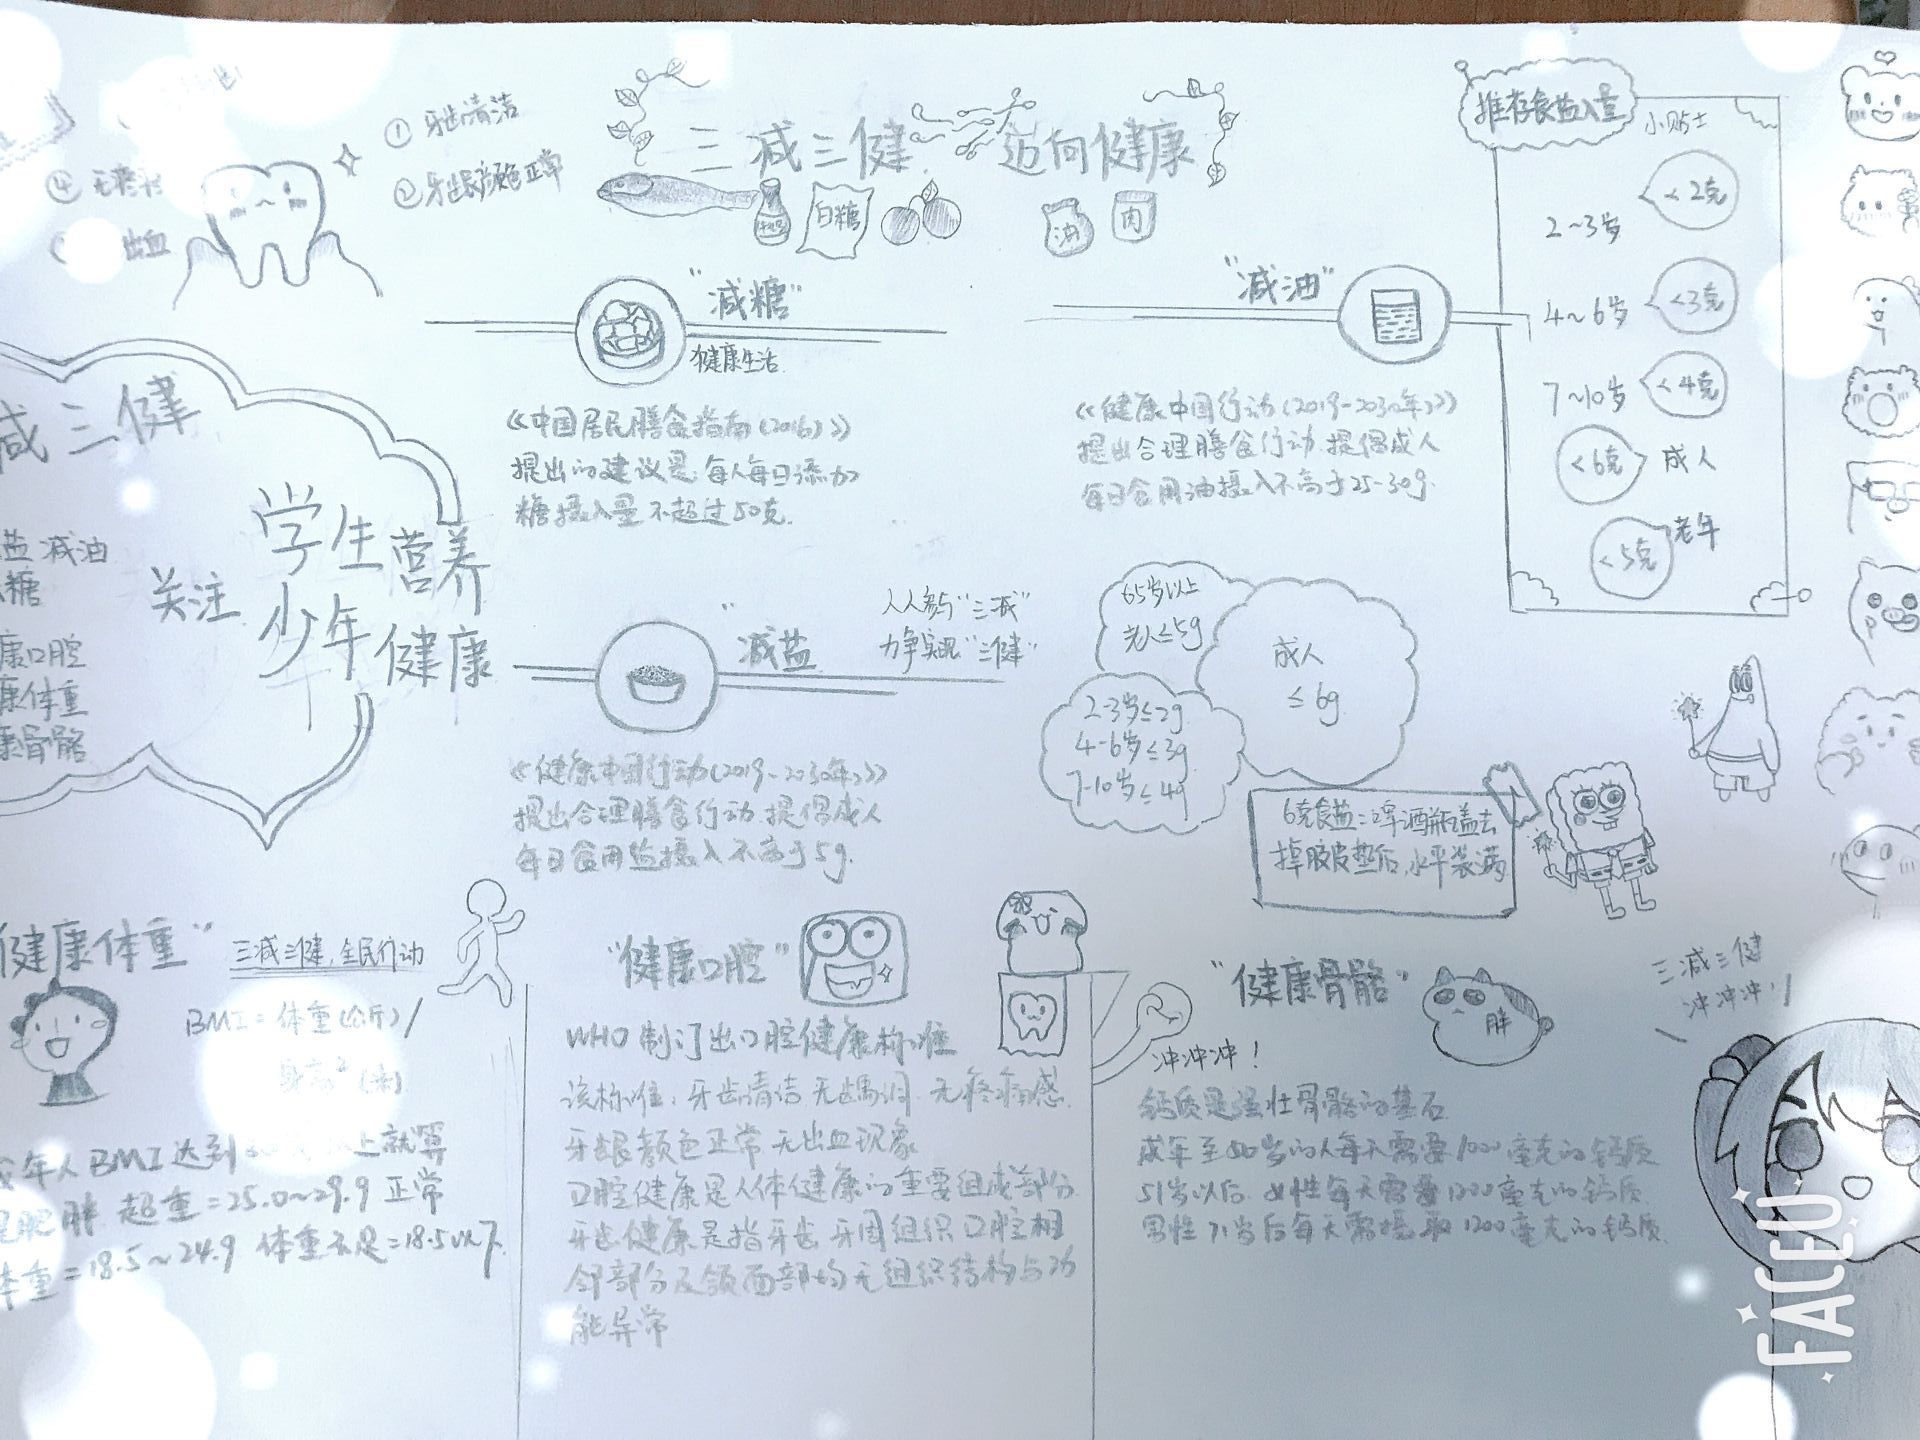 三减三健 迈向健康
① 牙齿清洁
② 牙龈颜色正常
④ 无疼
出血
白糖
油
肉
推荐食盐入量
小贴士
2~3岁 <2克
4~6岁 <3克
7~10岁 <4克
<6克 成人
<5克 老年
"减糖"
健康生活
《中国居民膳食指南(2016)》
提出的建议是:每人每日添加
糖摄入量不超过50克.
"减油"
《健康中国行动(2019-2030年)》
提出合理膳食行动.提倡成人
每日食用油摄入不高于25-30g.
减三健
盐 减油
糖
康口腔
康体重
康骨骼
关注
学生营养
少年健康
"减盐
人人参与"三减"
力争实现"三健"
《健康中国行动(2019-2030年)》
提出合理膳食行动.提倡成人
每日食用盐摄入不高于5g.
65岁以上
老人≤5g
成人
≤6g
2-3岁≤2g
4-6岁≤3g
7-10岁≤4g
6克食盐:啤酒瓶盖去
掉胶皮垫后,水平装满
健康体重"
三减三健,全民行动
BMI=体重(公斤)/
身高²(米)
年人BMI达到 上就算
是肥胖 超重=25.0~29.9 正常
体重=18.5~24.9 体重不足=18.5以下
"健康口腔"
WHO制订出口腔健康标准
该标准:牙齿清洁 无龋洞 无疼痛感
牙龈颜色正常 无出血现象
口腔健康是人体健康的重要组成部分
牙齿健康是指牙齿 牙周组织 口腔相
邻部分及颌面部均无组织结构与功
能异常
"健康骨骼"
胖
冲冲冲!
钙质是强壮骨骼的基石
成年至50岁的人每天需要1000毫克的钙质
51岁以后 女性每天需要1200毫克的钙质
男性71岁后每天需摄取1200毫克的钙质
三减三健
冲冲冲!
FACEU